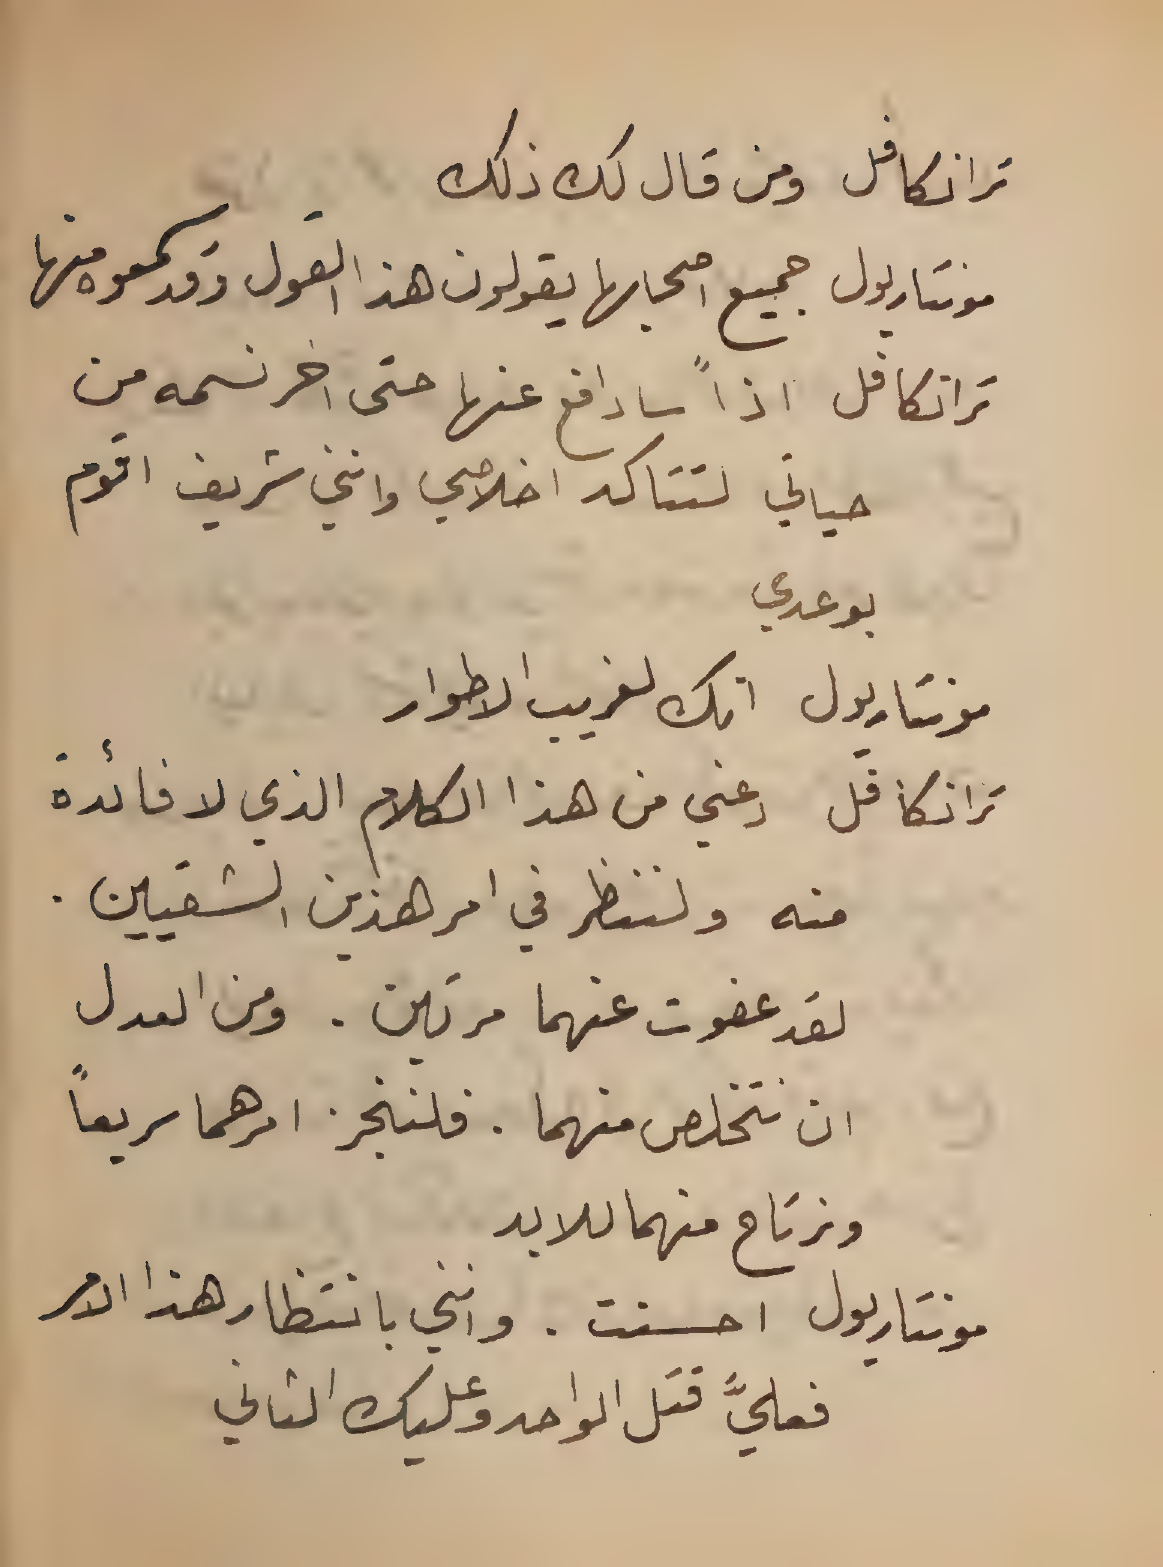 ترانكافل ومن قال لك ذلك
مونتاربول جميع اصحابها يقولون هذا القول وقد سمعوه منها
ترانكافل اذاً سادافع عنها حتى اخر نسمه من
حياتي لتتاكد اخلاصي وانني شريف اقوم
بوعدي
مونتاربول انك لغريب الاطوار
ترانكافل دعني من هذا الكلام الذي لا فائدة
منه ولننظر في امر هذين الشقيين .
لقد عفوت عنهما مرتين . ومن العدل
ان نتخلص منهما . فلننجز امرهما سريعاً
ونرتاح منهما للابد
مونتاربول احسنت . وانني بانتظار هذا الامر
فعليَّ قتل الواحد وعليك الثاني